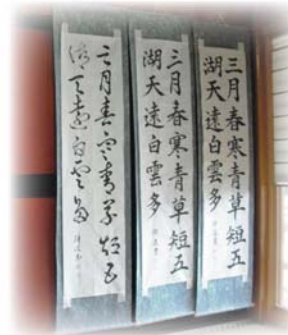 三月春寒青草短五
湖天遠白雲多
三月春寒青草短五
湖天遠白雲多
三月春寒青草短五
湖天遠白雲多